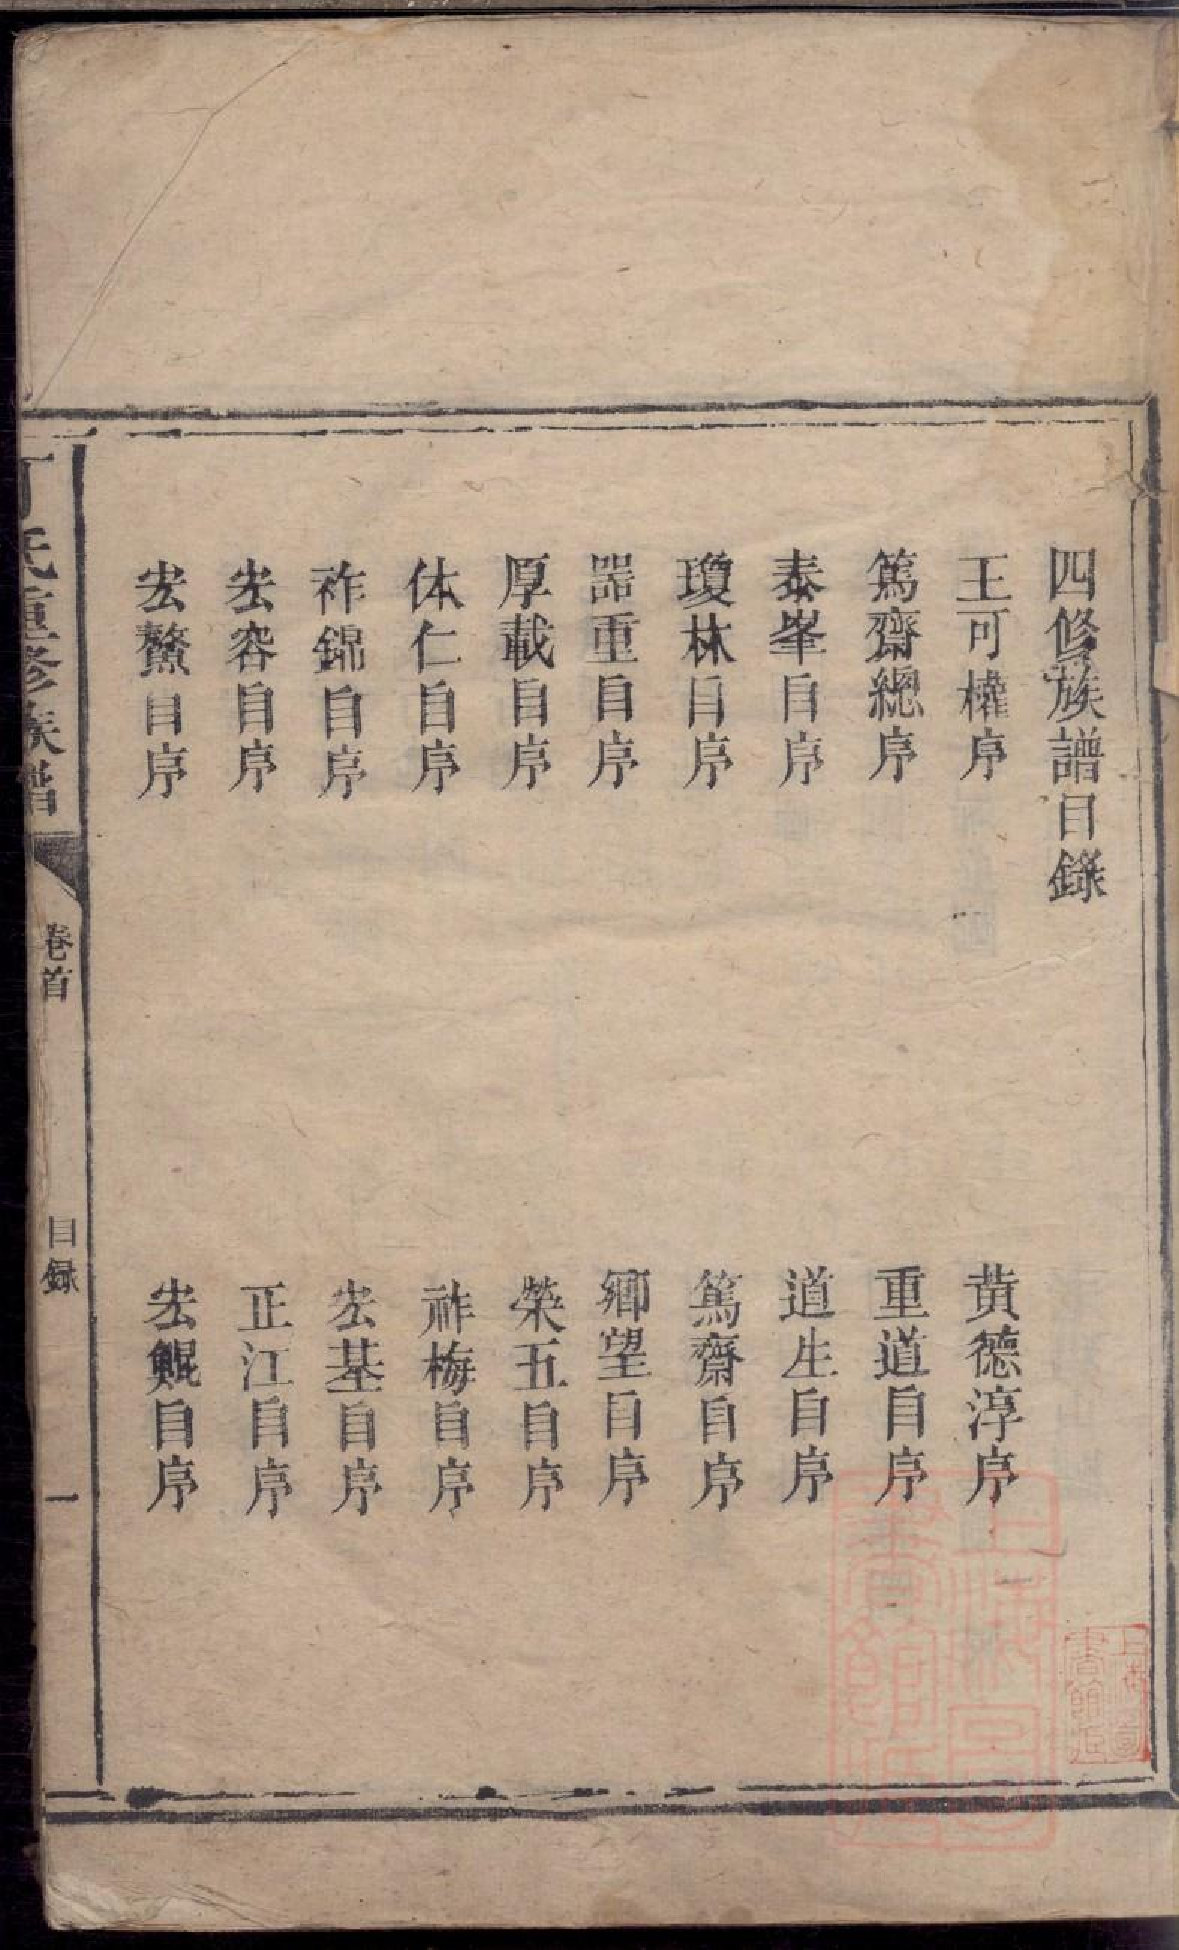 四修族譜目錄
王可權序
黄德淳序
篤齋總序
重道自序
泰峯自序
道生自序
瓊林自序
篤齋自序
器重自序
卿望自序
厚載自序
榮五自序
体仁自序
祚梅自序
祚錦自序
宏基自序
宏容自序
正江自序
宏鰲自序
宏鯤自序
丁氏重修族譜
卷首
目録
一
上海圖書館藏